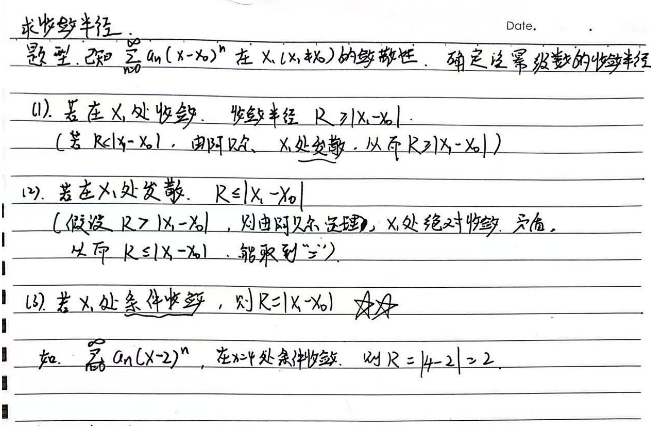 求收敛半径.
Date.
题型.已知 ∑_{n=0}^{∞} an(x-x₀)ⁿ 在 x₁(x₁≠x₀)的敛散性. 确定这幂级数的收敛半径
(1). 若在 x₁ 处收敛. 收敛半径 R≥|x₁-x₀|.
(若 R<|x₁-x₀|. 由阿贝尔、x₁处发散. 从而 R≥|x₁-x₀|)
(2). 若在x₁处发散. R≤|x₁-x₀|
(假设 R>|x₁-x₀|, 则由阿贝尔定理, x₁处绝对收敛. 矛盾.
从而 R≤|x₁-x₀|. 能取到“=”).
(3). 若 x₁处条件收敛, 则 R=|x₁-x₀| ☆☆
如. ∑_{n=0}^{∞} an(x-2)ⁿ, 在x=4处条件收敛. 则 R=|4-2|=2.